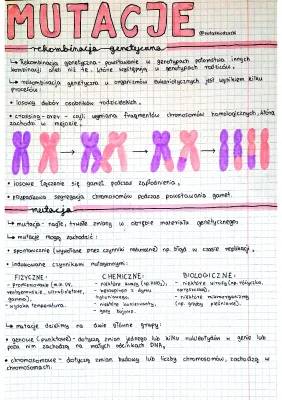 MUTACJE
rekombinacja genetyczna
↳ Rekombinacja genetyczna - powstawanie w genotypach potomstwa innych
kombinacji alleli niż te, które występują w genotypach rodziców.
↳ rekombinacja genetyczna u organizmów eukariotycznych jest wynikiem kilku
procesów:
• losowy dobór osobników rodzicielskich,
• crossing-over - czyli wymiana fragmentów chromosomów homologicznych, która
zachodzi w mejozie,
• losowe łączenie się gamet podczas zapłodnienia,
• niezależna segregacja chromosomów podczas powstawania gamet.
mutacja
↳ mutacja - nagłe, trwałe zmiany w obrębie materiału genetycznego.
↳ mutacje mogą zachodzić:
• spontanicznie (wywołane przez czynniki naturalne) np. błąd w czasie replikacji,
• indukowane czynnikami mutagennymi:
FIZYCZNE:
CHEMICZNE:
BIOLOGICZNE:
- promieniowanie (m.in. UV,
rentgenowskie, ultrafioletowe,
gamma),
- wysoka temperatura.
- niektóre kwasy (np. HNO₂),
- benzopiren z dymu
tytoniowego,
- niektóre
- gazy bojowe.
- niektóre wirusy (np.
- niektóre mikroorganizmy
(np. grzyby pleśniowe).
↳ mutacje dzielimy na dwie główne grupy:
• genowe (punktowe) - dotyczą zmian jednego lub kilku nukleotydów w genie lub
poza nim zachodzą na małych odcinkach DNA,
• chromosomowe - dotyczą zmian budowy lub liczby chromosomów, zachodzą w
chromosomach.